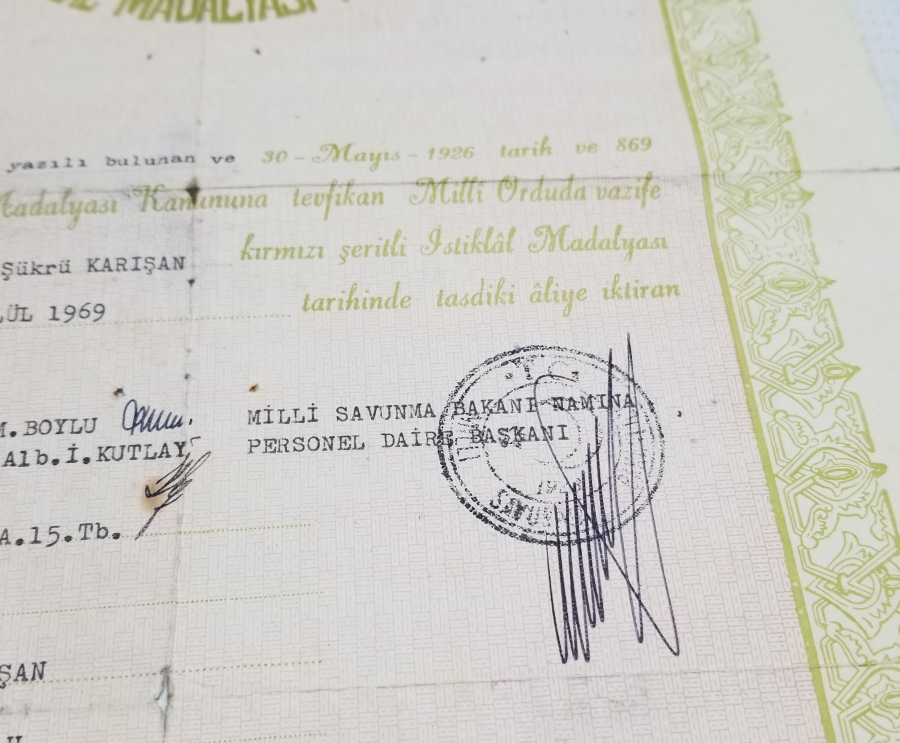 MADALYASI
yazılı bulunan ve 30 - Mayıs - 1926 tarih ve 869
Madalyası Kanununa tevfikan Millî Orduda vazife
Şükrü KARIŞAN kırmızı şeritli İstiklâl Madalyası
LÜL 1969 tarihinde tasdiki âliye iktiran
M.BOYLU MİLLİ SAVUNMA BAKANI NAMINA
Alb.İ.KUTLAY PERSONEL DAİRE BAŞKANI
T.C.
A.15.Tb.
ŞAN